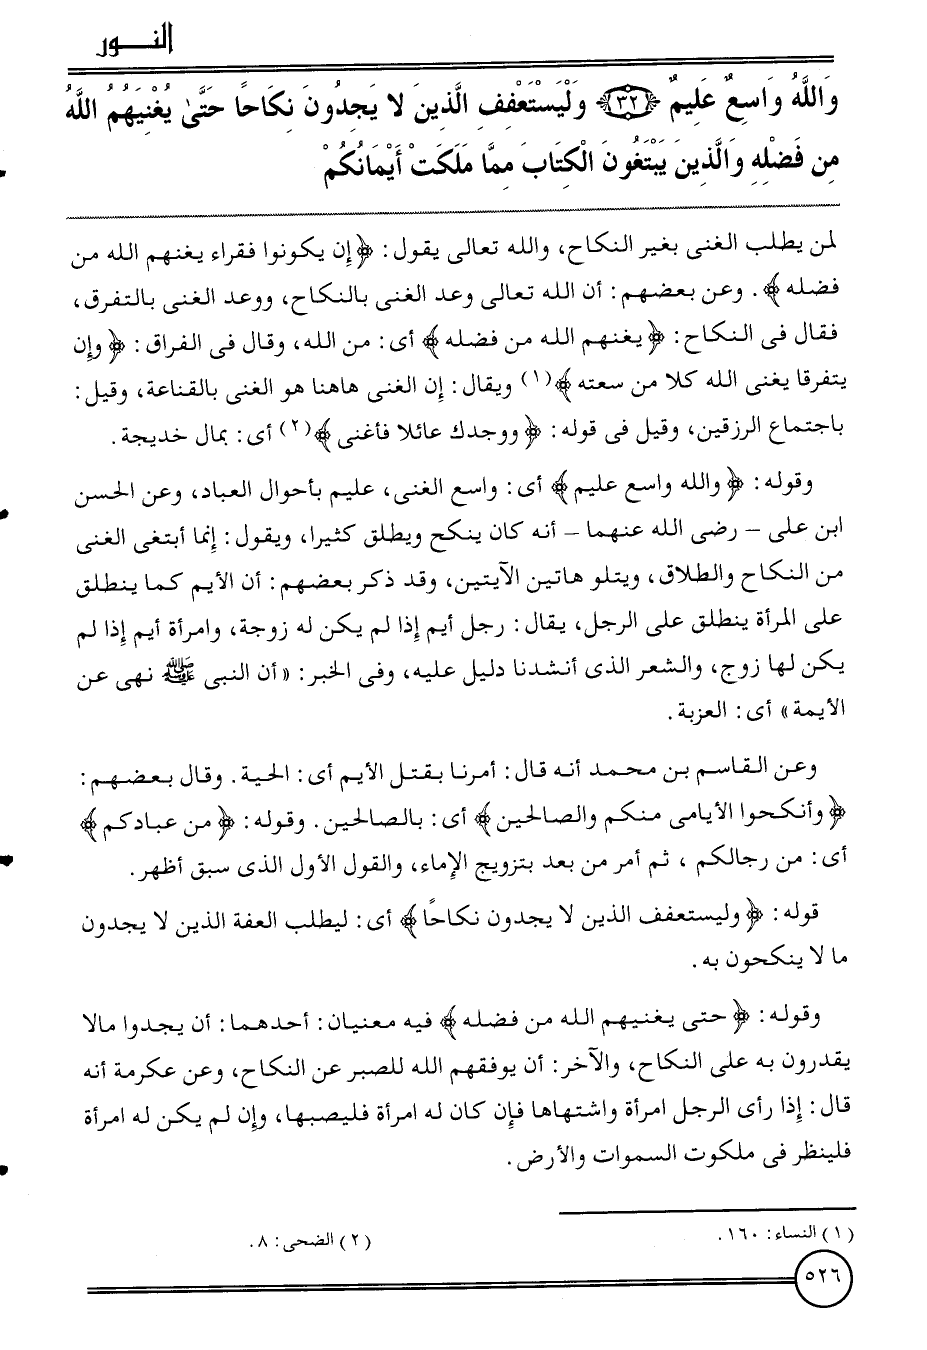 النـــور
وَاللَّهُ وَاسِعٌ عَلِيمٌ ﴿٣٢﴾ وَلْيَسْتَعْفِفِ الَّذِينَ لا يَجِدُونَ نِكَاحًا حَتَّىٰ يُغْنِيَهُمُ اللَّهُ
مِن فَضْلِهِ وَالَّذِينَ يَبْتَغُونَ الْكِتَابَ مِمَّا مَلَكَتْ أَيْمَانُكُمْ
لمن يطلب الغنى بغير النكاح، والله تعالى يقول: ﴿إن يكونوا فقراء يغنهم الله من
فضله﴾. وعن بعضهم: أن الله تعالى وعد الغنى بالنكاح، ووعد الغنى بالتفرق،
فقال فى النكاح: ﴿يغنهم الله من فضله﴾ أى: من الله، وقال فى الفراق: ﴿وإن
يتفرقا يغنى الله كلا من سعته﴾(١) ويقال: إن الغنى هاهنا هو الغنى بالقناعة، وقيل:
باجتماع الرزقين، وقيل فى قوله: ﴿ووجدك عائلا فأغنى﴾(٢) أى: بمال خديجة.
وقوله: ﴿والله واسع عليم﴾ أى: واسع الغنى، عليم بأحوال العباد، وعن الحسن
ابن على – رضى الله عنهما – أنه كان ينكح ويطلق كثيرا، ويقول: إنما أبتغى الغنى
من النكاح والطلاق، ويتلو هاتين الآيتين، وقد ذكر بعضهم: أن الأيم كما ينطلق
على المرأة ينطلق على الرجل، يقال: رجل أيم إذا لم يكن له زوجة، وامرأة أيم إذا لم
يكن لها زوج، والشعر الذى أنشدنا دليل عليه، وفى الخبر: «أن النبى ﷺ نهى عن
الأيمة» أى: العزبة.
وعن القاسم بن محمد أنه قال: أمرنا بقتل الأيم أى: الحية. وقال بعضهم:
﴿وأنكحوا الأيامى منكم والصالحين﴾ أى: بالصالحين. وقوله: ﴿من عبادكم﴾
أى: من رجالكم ، ثم أمر من بعد بتزويج الإماء، والقول الأول الذى سبق أظهر.
قوله: ﴿وليستعفف الذين لا يجدون نكاحًا﴾ أى: ليطلب العفة الذين لا يجدون
ما لا ينكحون به.
وقوله: ﴿حتى يغنيهم الله من فضله﴾ فيه معنيان: أحدهما: أن يجدوا مالا
يقدرون به على النكاح، والآخر: أن يوفقهم الله للصبر عن النكاح، وعن عكرمة أنه
قال: إذا رأى الرجل امرأة واشتهاها فإن كان له امرأة فليصبها، وإن لم يكن له امرأة
فلينظر فى ملكوت السموات والأرض.
(١) النساء: ١٦٠. (٢) الضحى: ٨.
٥٢٦